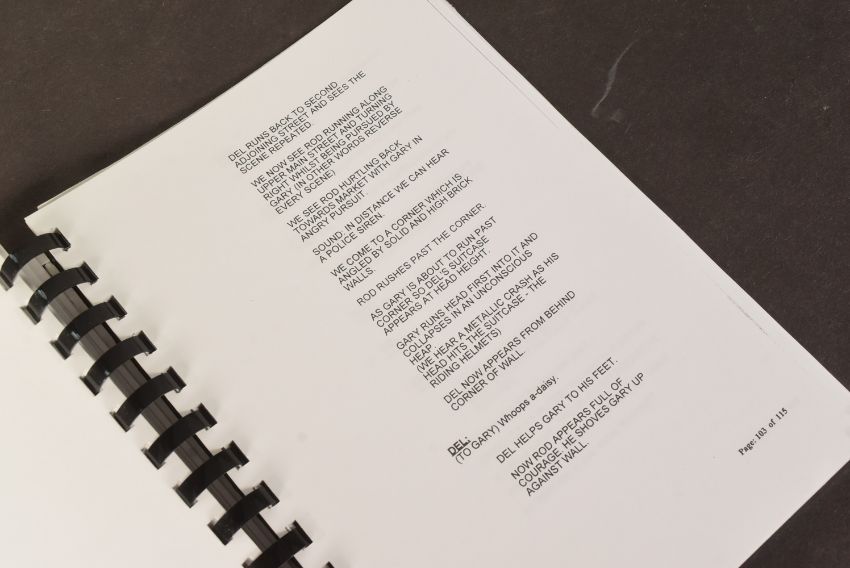 DEL RUNS BACK TO SECOND
ADJOINING STREET AND SEES THE
SCENE REPEATED.
WE NOW SEE ROD RUNNING ALONG
UPPER MAIN STREET AND TURNING
RIGHT WHILST BEING PURSUED BY
GARY (IN OTHER WORDS REVERSE
EVERY SCENE)
WE SEE ROD HURTLING BACK
TOWARDS MARKET WITH GARY IN
ANGRY PURSUIT.
SOUND: IN DISTANCE WE CAN HEAR
A POLICE SIREN.
WE COME TO A CORNER WHICH IS
ANGLED BY SOLID AND HIGH BRICK
WALLS.
ROD RUSHES PAST THE CORNER.
AS GARY IS ABOUT TO RUN PAST
CORNER SO DEL'S SUITCASE
APPEARS AT HEAD HEIGHT.
GARY RUNS HEAD FIRST INTO IT AND
COLLAPSES IN AN UNCONSCIOUS
HEAP
(WE HEAR A METALLIC CRASH AS HIS
HEAD HITS THE SUITCASE - THE
RIDING HELMETS)
DEL NOW APPEARS FROM BEHIND
CORNER OF WALL.
DEL:
(TO GARY) Whoops a-daisy.
DEL HELPS GARY TO HIS FEET.
NOW ROD APPEARS FULL OF
COURAGE. HE SHOVES GARY UP
AGAINST WALL.
Page: 103 of 115